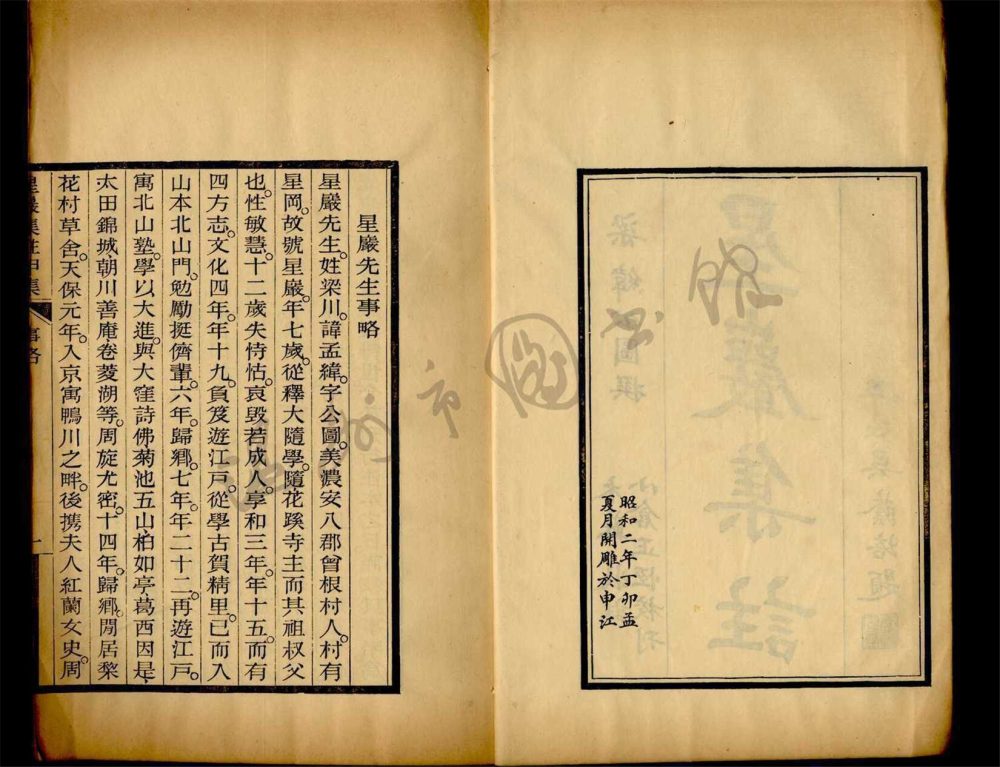 昭和二年丁卯孟
夏月開雕於申江
星巖先生事略
星巖先生。姓梁川。諱孟緯。字公圖。美濃安八郡曾根村人。村有
星岡。故號星巖。年七歲。從釋大隨學。隨花蹊寺主而其祖叔父
也。性敏慧。十二歲失恃怙。哀毀若成人。享和三年。年十五。而有
四方志。文化四年。年十九。負笈遊江戸。從學古賀精里。已而入
山本北山門。勉勵挺儕輩。六年。歸鄉。七年。年二十二。再遊江戸。
寓北山塾。學以大進。與大窪詩佛、菊池五山、柏如亭、葛西因是、
太田錦城、朝川善庵、卷菱湖等。周旋尤密。十四年。歸鄉。閒居棃
花村草舍。天保元年。入京寓鴨川之畔。後携夫人紅蘭女史周
星巖集註甲集
事略
一